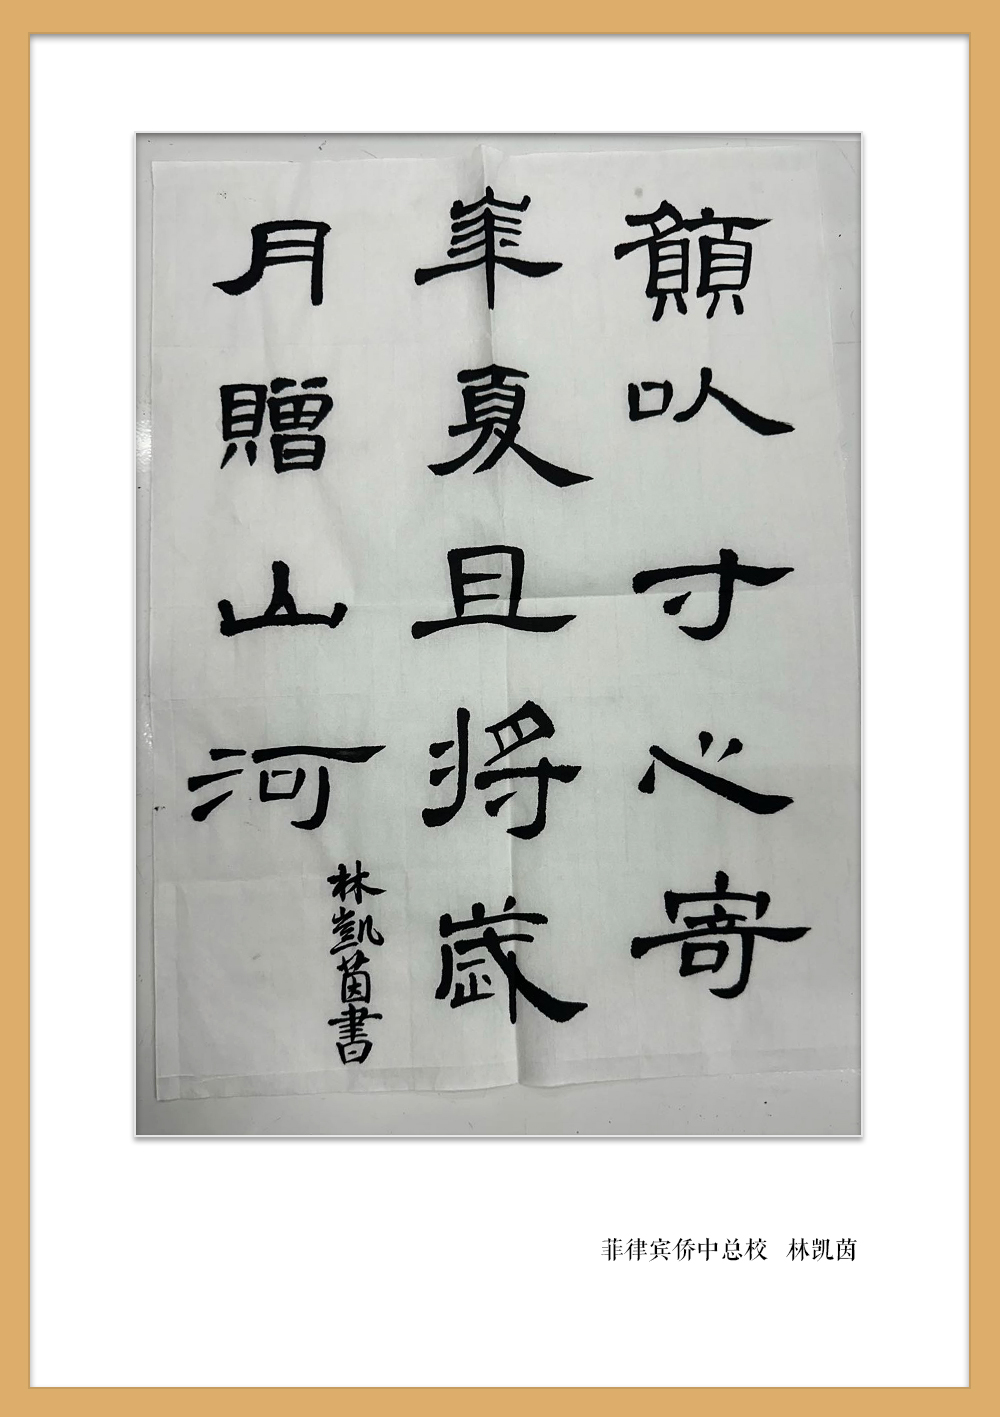 願以寸心寄
華夏且將歲
月贈山河
林凱茵書
菲律宾侨中总校 林凯茵